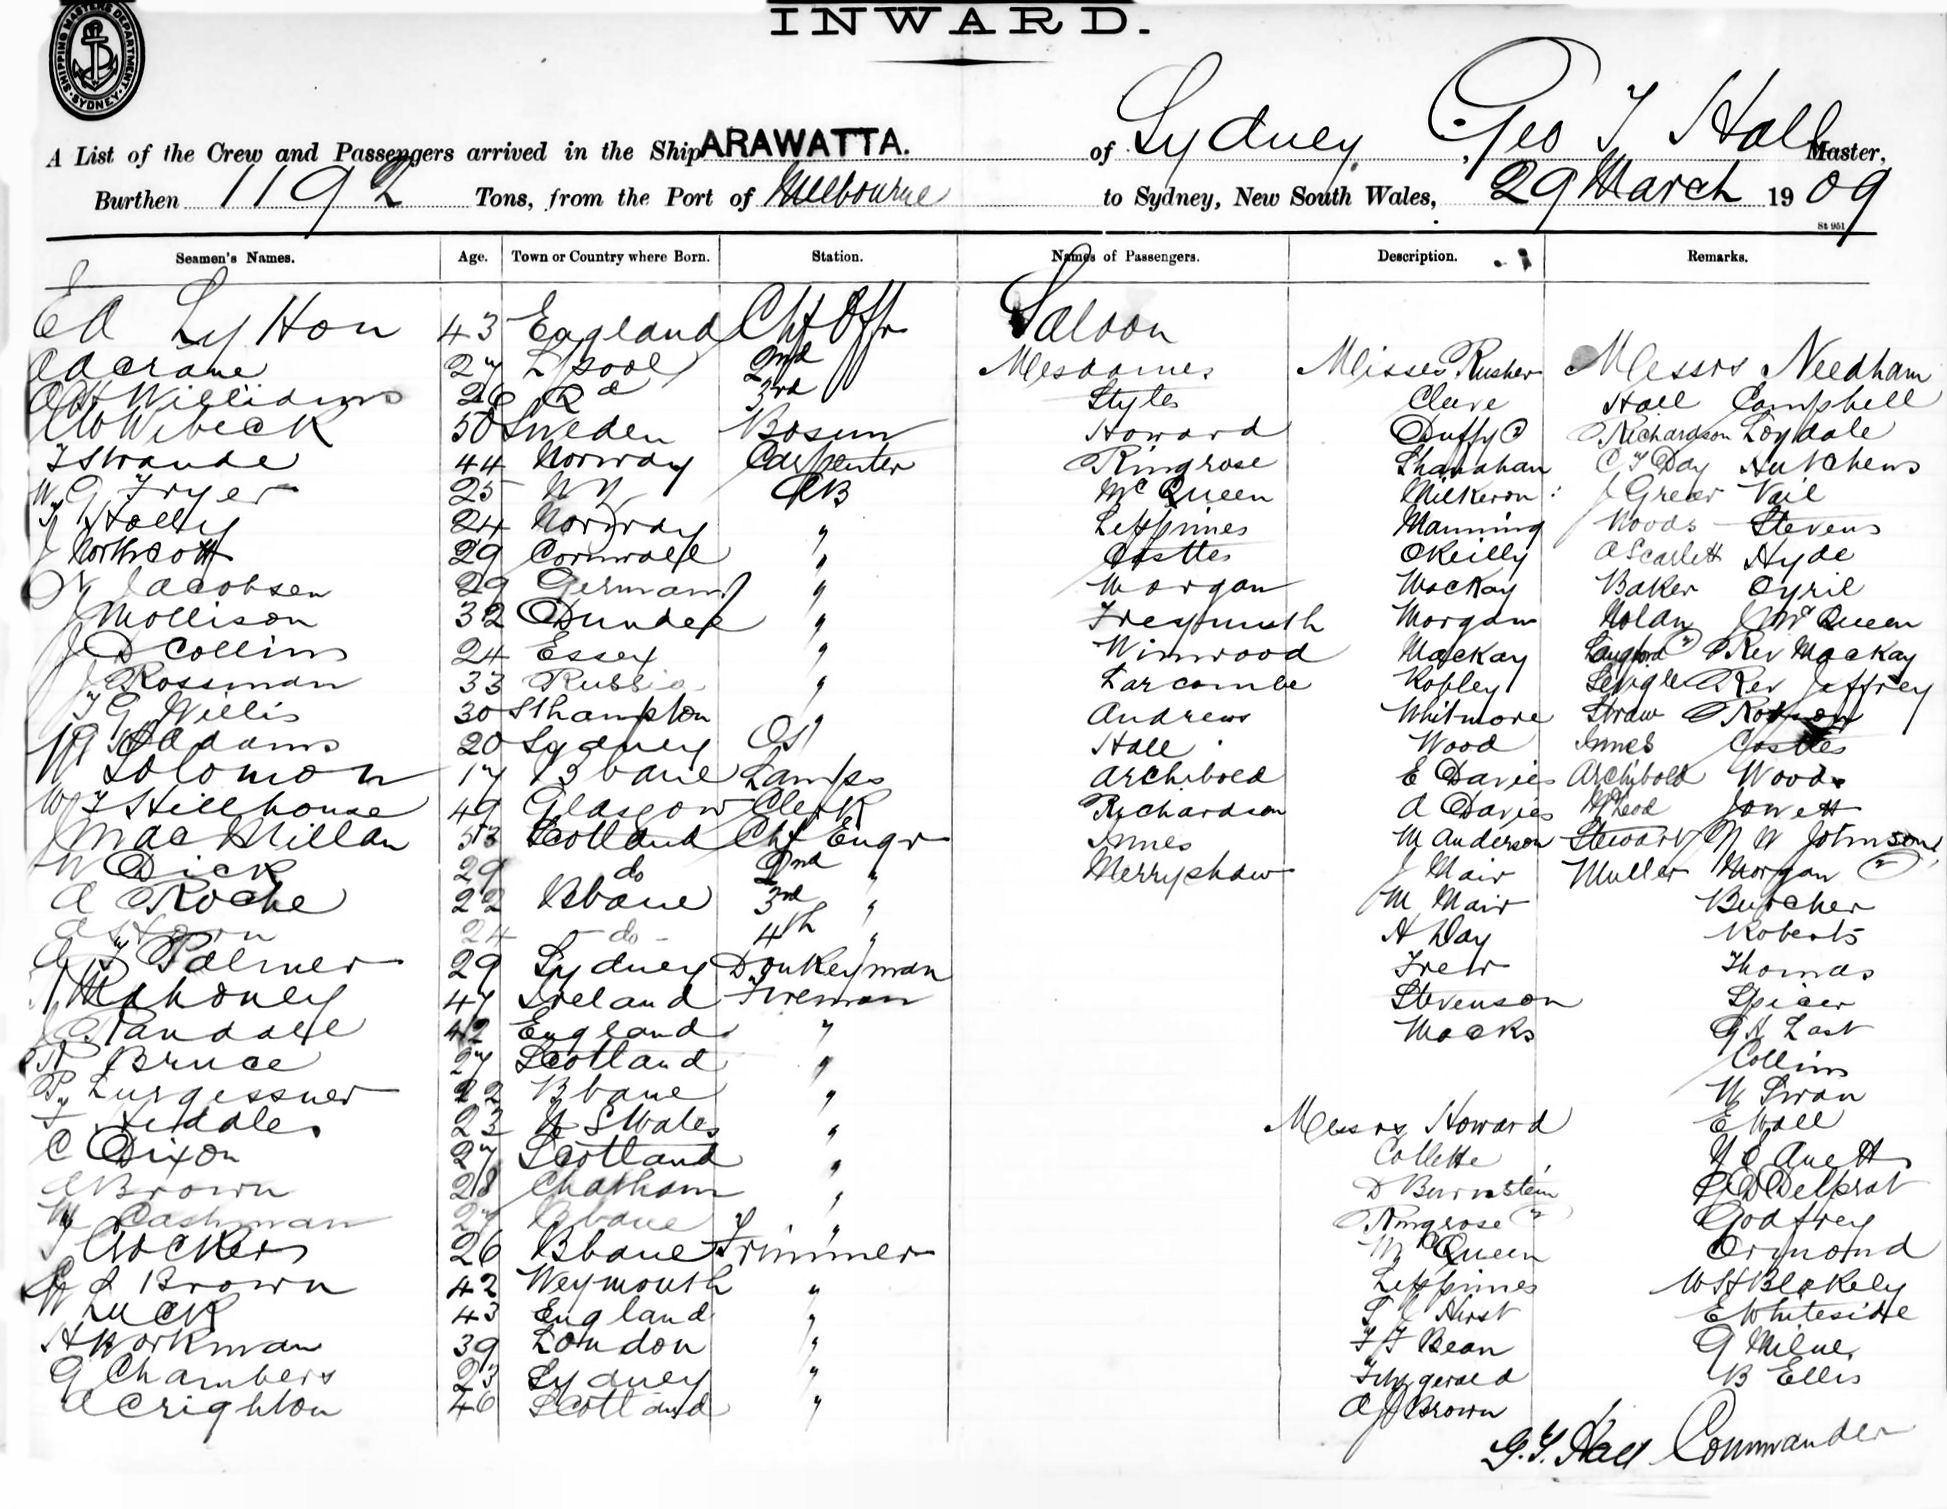 INWARD.
SHIPPING MASTERS DEPARTMENT. SYDNEY.
A List of the Crew and Passengers arrived in the Ship ARAWATTA. of Sydney, Geo T Hall Master,
Burthen 1192 Tons, from the Port of Melbourne to Sydney, New South Wales, 29 March 1909
St 951
Seamen's Names. Age. Town or Country where Born. Station. Names of Passengers. Description. Remarks.
Ed Lytton 43 England Chf Offr Saloon
A A Crane 27 L'pool 2nd Mesdames Misses Rusher Messrs Needham
Williams 26 3rd Styles Cleeve Hall Campbell
Wibeck 50 Sweden Bosun Howard Duffy Richardson Loydale
44 Norway Carpenter Ringrose Shanahan C T Day Hutchens
W G Fryer 25 N Z AB McQueen J Greer Vail
J Holly 24 Norway " Manning Woods Stevens
J Northcott 29 Cornwall " Castles OReilly A Scarlett Hyde
N Jacobsen 29 Germany " Morgan Mackay Baker Cyril
J Mollison 32 Dundee " Freymuth Morgan Nolan J McQueen
J D Collins 24 Essex " Winwood Mackay Langford Rev Mackay
J Rossman 33 Russia " Larcombe Kopley Rev Jeffrey
T G Willis 30 Sthampton Andrews Whitmore Straw
Adams 20 Sydney OS Hall Wood Innes Castles
W Solomon 17 Bbane Lamps Archibold E Davies Archibold Woods
W T Hillhouse 49 Glasgow Clerk Richardson A Davies McLeod Jowett
J MacMillan 53 Scotland Chf Engr Innes M Anderson Stewart N W Johnson
W Dick 29 do 2nd " Merryshaw J Mair Muller Morgan
A Roche 22 Bbane 3rd " M Mair Butcher
24 - do - 4th " A Day Roberts
A T Palmer 29 Sydney Donkeyman Frew Thomas
Mahoney 47 Ireland Fireman Stevenson Spicer
Randall 42 England " Macks G A Last
Bruce 27 Scotland " Collins
Lurgessner 22 Bbane " W Swan
Liddle 23 N S Wales " Messrs Howard E Wall
C Dixon 27 Scotland " Collette
A Brown 28 Chatham " D Burnstein G D Delprat
W Cashman 27 Bbane " Ringrose Godfrey
T Crocker 26 Bbane Trimmer McQueen Ormond
Brown 42 Weymouth " W H Blakely
W Luck 43 England " Hirst E Whiteside
A Workman 39 London " Bean G Milne
G Chambers 23 Sydney " Fitzgerald B Ellis
A Crighton 46 Scotland " A J Brown
G. T. Hall Commander